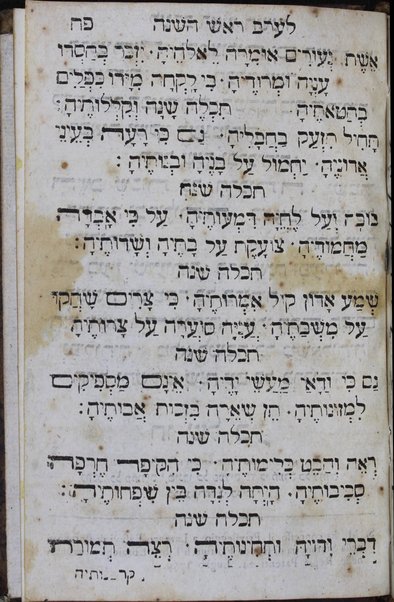 לערב ראש השנה פח
אשת נעורים אומרה לאלהיה׃ יזכר בחסדו
עניה ומרודיה׃ כי לקחה מידו כפלים
בחטאתיה תכלה שנה וקללותיה׃
החיל תזעק בחבליה׃ גם כי רעה בעיני
אדוניה׃ יחמול על בניה ובנותיה׃
תכלה שנה
בוכה ועל לחיה דמעותיה׃ על כי אבדה
מחמודיה׃ צועקת על בתיה ושדותיה׃
תכלה שנה
שמע אדון קול אמרותיה׃ כי צרים שחקו
על משבתיה׃ עניה סוערה על צרותיה׃
תכלה שנה
גם כי ודאי מעשי ידיה׃ אינם מספיקים
למזונותיה׃ תן שאריה בזכות אבותיה׃
תכלה שנה
ראה והבט כלימותיה׃ כי הקיפה חרפה
סביבותיה׃ היתה לנדה בין שפחותיה׃
תכלה שנה
דברי ודויה ותחנותיה׃ רצה תמורת